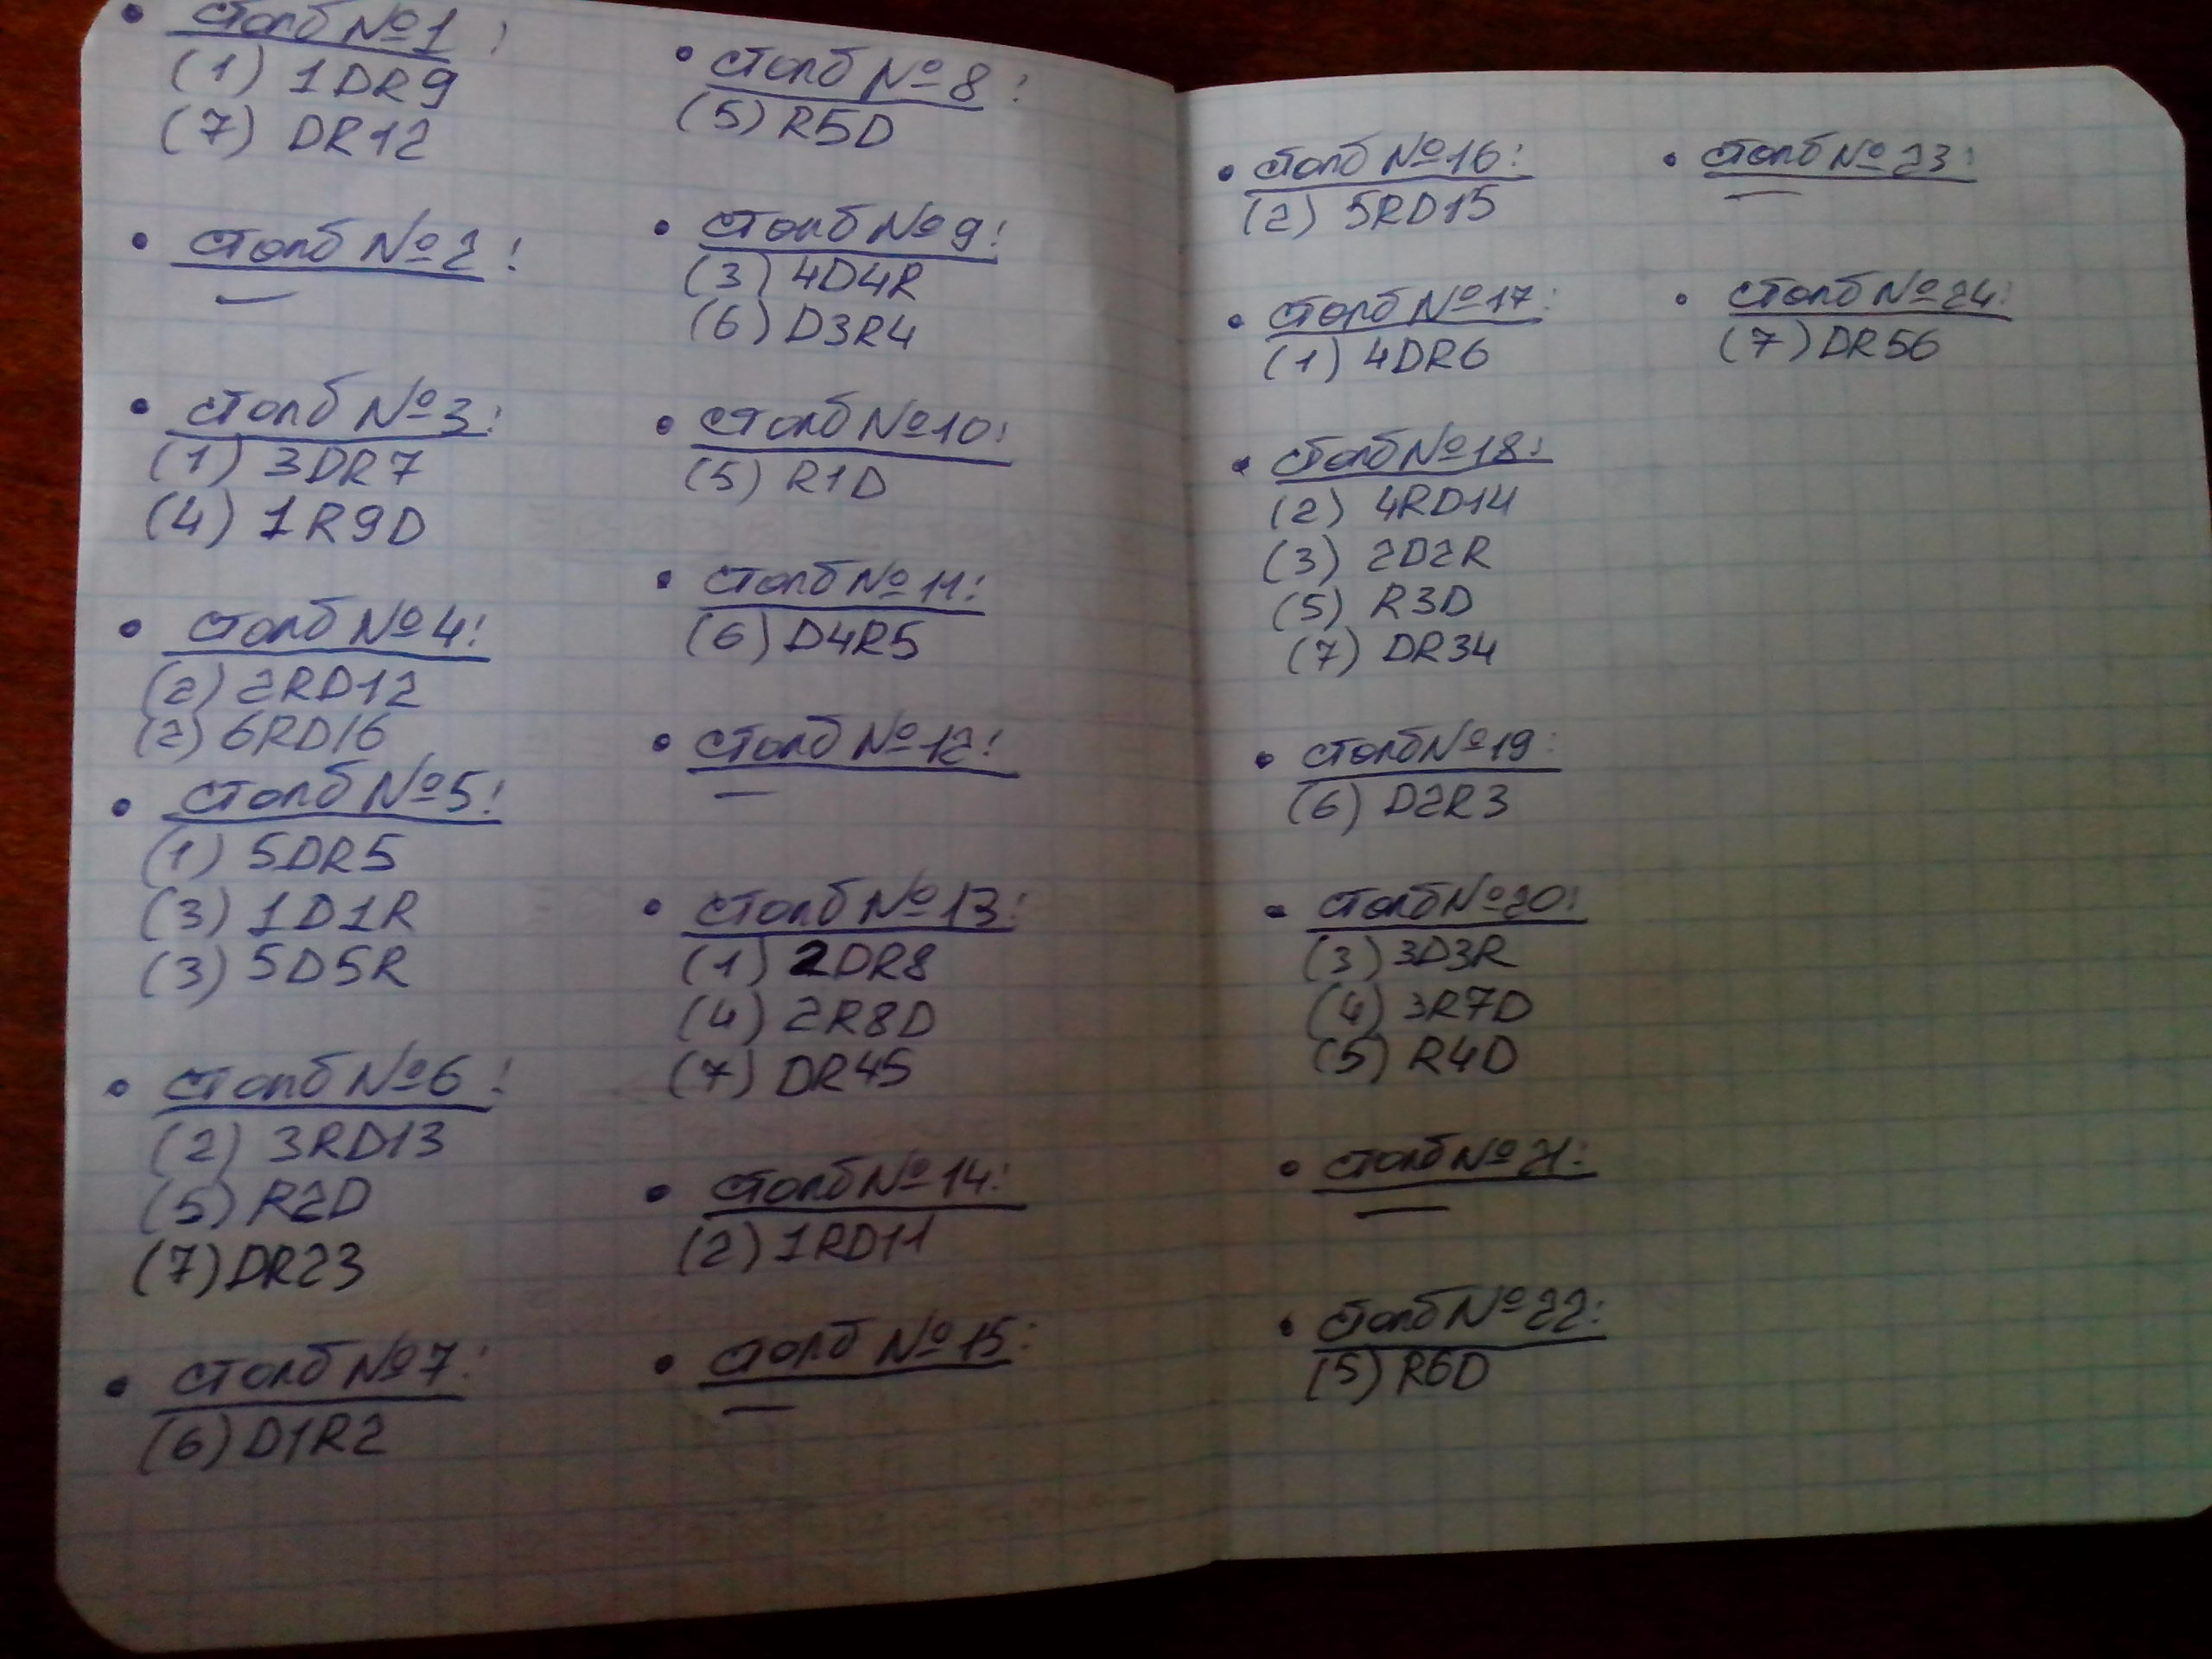 • столб №1:
(1) 1DR9
(7) DR12
• столб №2:
—
• столб №3:
(1) 3DR7
(4) 1R9D
• столб №4:
(2) 2RD12
(2) 6RD16
• столб №5:
(1) 5DR5
(3) 1D1R
(3) 5D5R
• столб №6:
(2) 3RD13
(5) R2D
(7) DR23
• столб №7:
(6) D1R2
• столб №8:
(5) R5D
• столб №9:
(3) 4D4R
(6) D3R4
• столб №10:
(5) R1D
• столб №11:
(6) D4R5
• столб №12:
—
• столб №13:
(1) 2DR8
(4) 2R8D
(7) DR45
• столб №14:
(2) 1RD11
• столб №15:
—
• столб №16:
(2) 5RD15
• столб №17:
(1) 4DR6
• столб №18:
(2) 4RD14
(3) 2D2R
(5) R3D
(7) DR34
• столб №19:
(6) D2R3
• столб №20:
(3) 3D3R
(4) 3R7D
(5) R4D
• столб №21:
—
• столб №22:
(5) R6D
• столб №23:
—
• столб №24:
(7) DR56